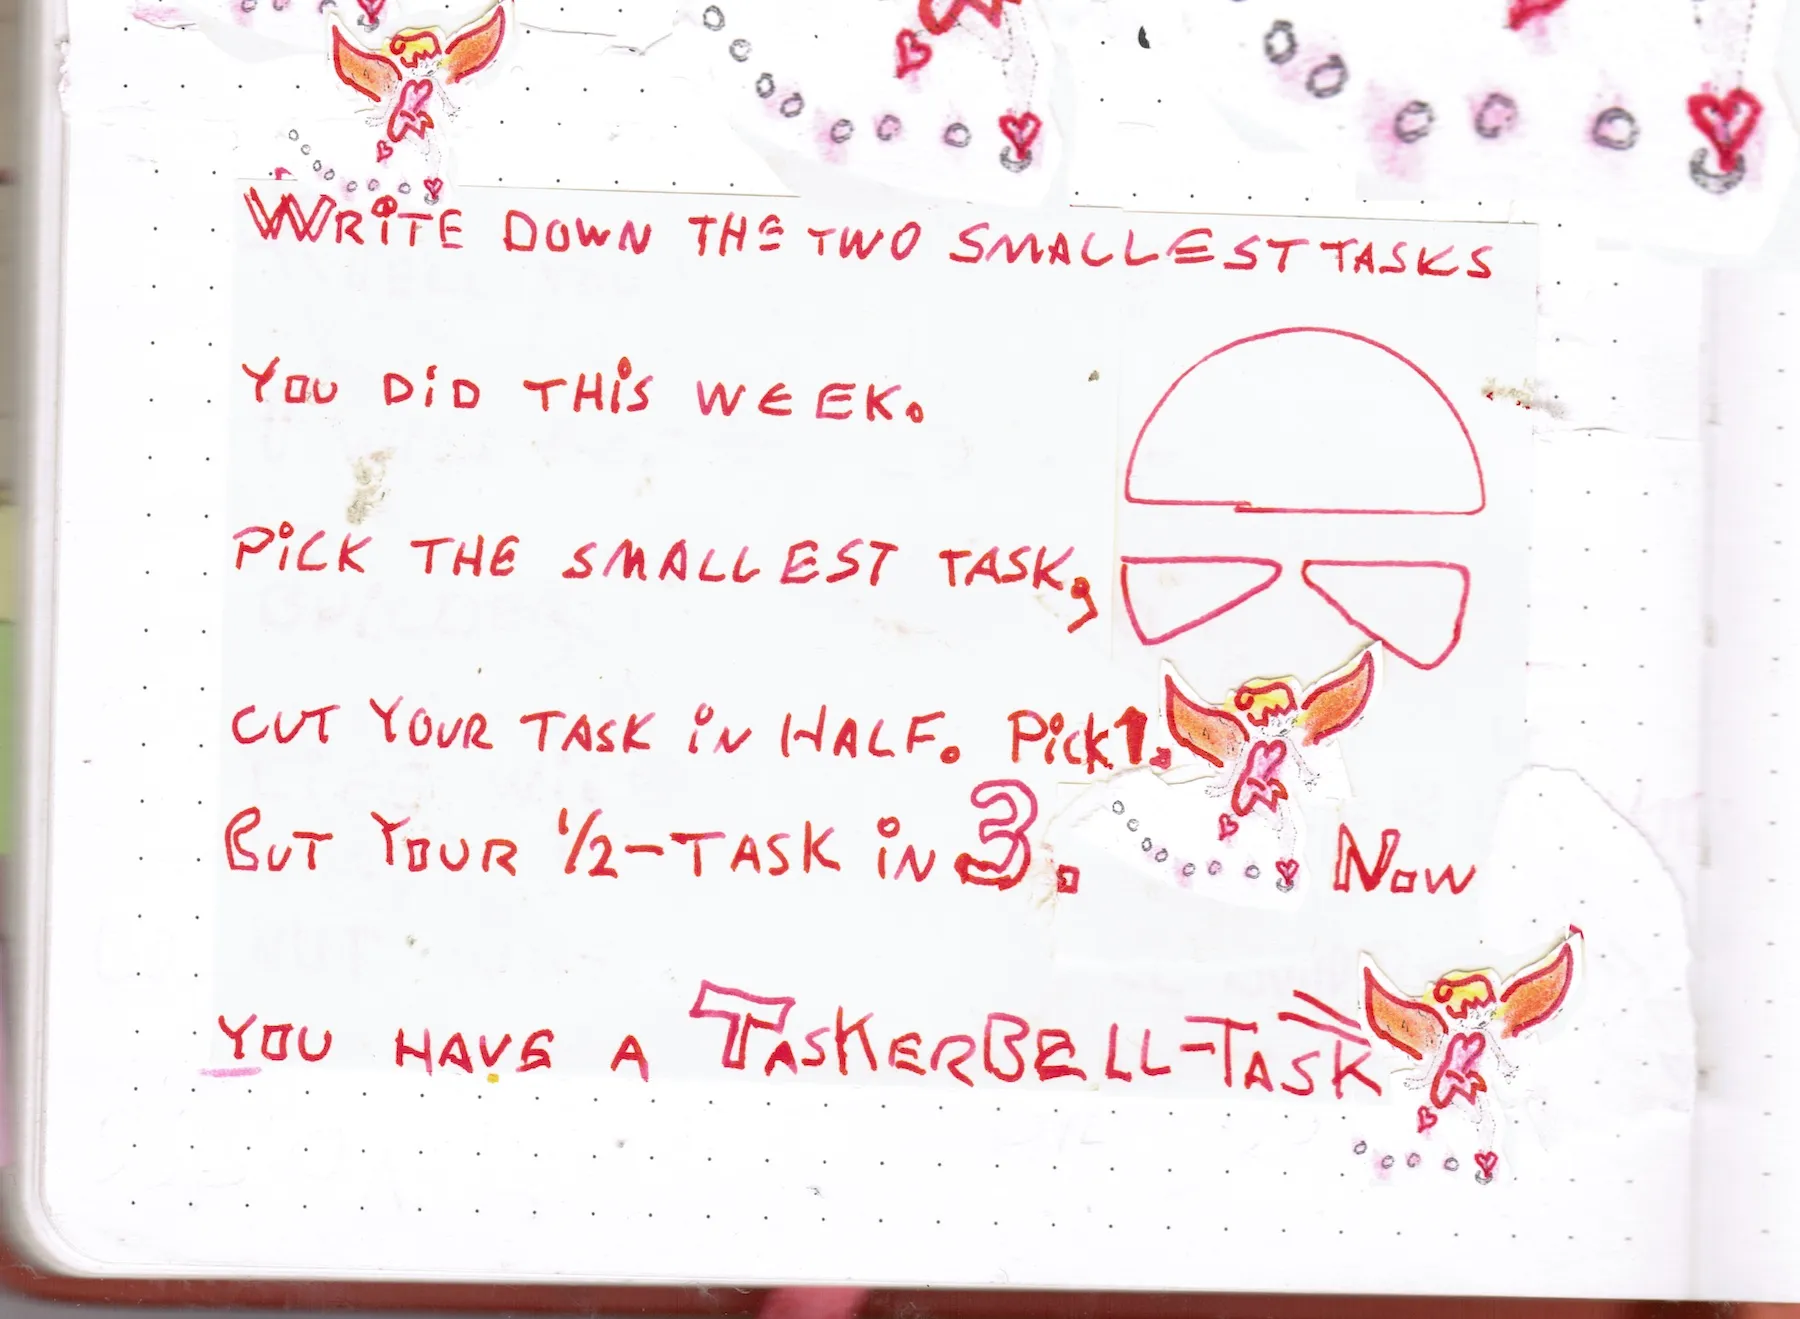 WRiTE DOWN THE TWO SMALLEST TASKS
YOU DiD THiS WEEK.
PiCK THE SMALLEST TASK,
CUT YOUR TASK iN HALF. PiCK 1.
BUT YOUR 1/2-TASK iN 3. NOW
YOU HAVE A TASKERBELL-TASK